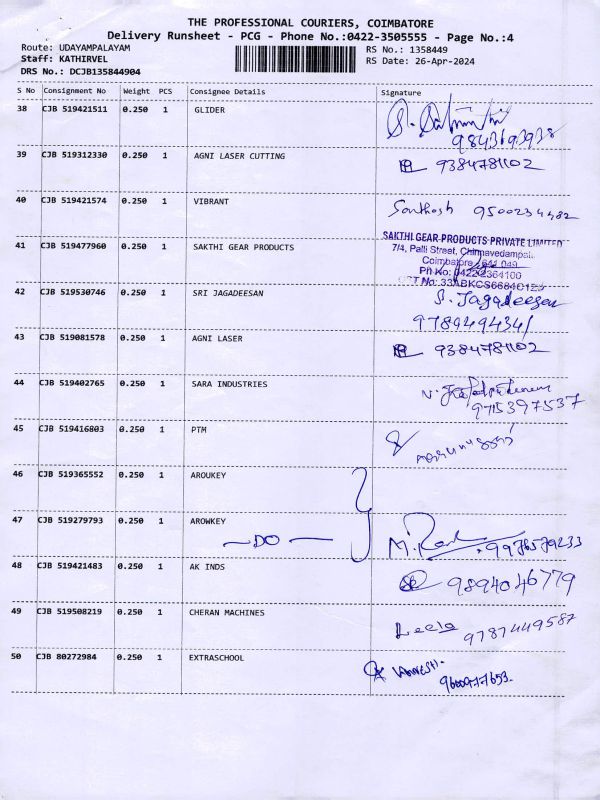 THE PROFESSIONAL COURIERS, COIMBATORE
Delivery Runsheet - PCG - Phone No.:0422-3505555 - Page No.:4
Route: UDAYAMPALAYAM RS No.: 1358449
Staff: KATHIRVEL RS Date: 26-Apr-2024
DRS No.: DCJB135844904
S No Consignment No Weight PCS Consignee Details Signature
38 CJB 519421511 0.250 1 GLIDER
9843693938
39 CJB 519312330 0.250 1 AGNI LASER CUTTING 9384781102
40 CJB 519421574 0.250 1 VIBRANT Santhosh 9500234482
41 CJB 519477960 0.250 1 SAKTHI GEAR PRODUCTS
SAKTHI GEAR PRODUCTS PRIVATE LIMITED
7/4, Palli Street, Chinnavedampatti
Coimbatore 641 049
Ph No: 0422 2364100
42 CJB 519530746 0.250 1 SRI JAGADEESAN S. Jagadeesan
9789494341
43 CJB 519081578 0.250 1 AGNI LASER 9384781102
44 CJB 519402765 0.250 1 SARA INDUSTRIES
9715397537
45 CJB 519416803 0.250 1 PTM
46 CJB 519365552 0.250 1 AROUKEY
47 CJB 519279793 0.250 1 AROWKEY
— DO — 9976579233
48 CJB 519421483 0.250 1 AK INDS 9894046779
49 CJB 519508219 0.250 1 CHERAN MACHINES Leela 9787449587
50 CJB 80272984 0.250 1 EXTRASCHOOL
9600977653